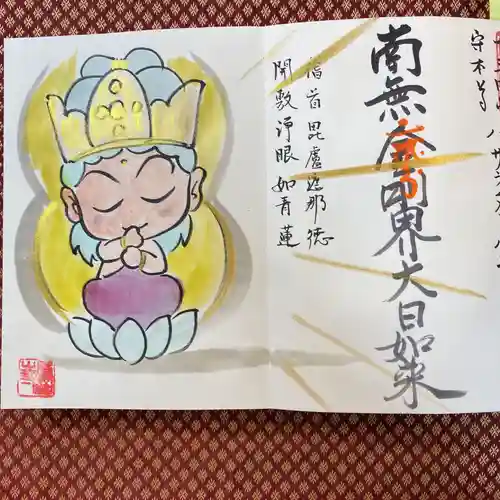 守本尊
南無金剛界大日如来
稽首毘盧遮那徳
開敷淨眼如青蓮